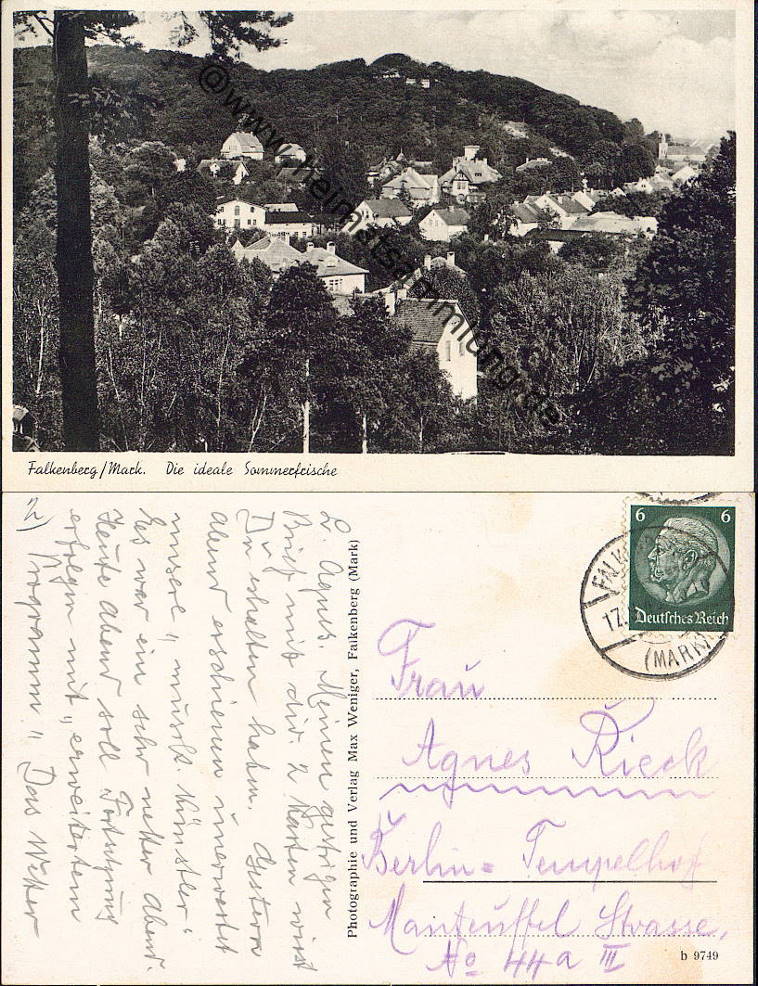 © www.heimatsammlung.de
Falkenberg/Mark. Die ideale Sommerfrische
2)
L. Agnes. Meinen gestrigen
Brief mit den 2 Karten wirst
Du erhalten haben. Gestern
Abend erschienen unerwartet
unsere „musik. Künstler“
Es war ein sehr netter Abend.
Heute Abend soll Fortsetzung
erfolgen mit „erweitertem
Programm“ Das Wetter
Photographie und Verlag Max Weniger, Falkenberg (Mark)
6 6
Deutsches Reich
FALK
17.
(MARK)
Frau
Agnes Rieck
Berlin=Tempelhof
Manteuffel Strasse,
No 44a III
b 9749